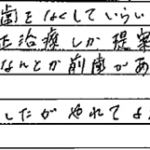 歯をなくしていらい
正治療しか提案
なんとか前歯があ
したがやれてよ